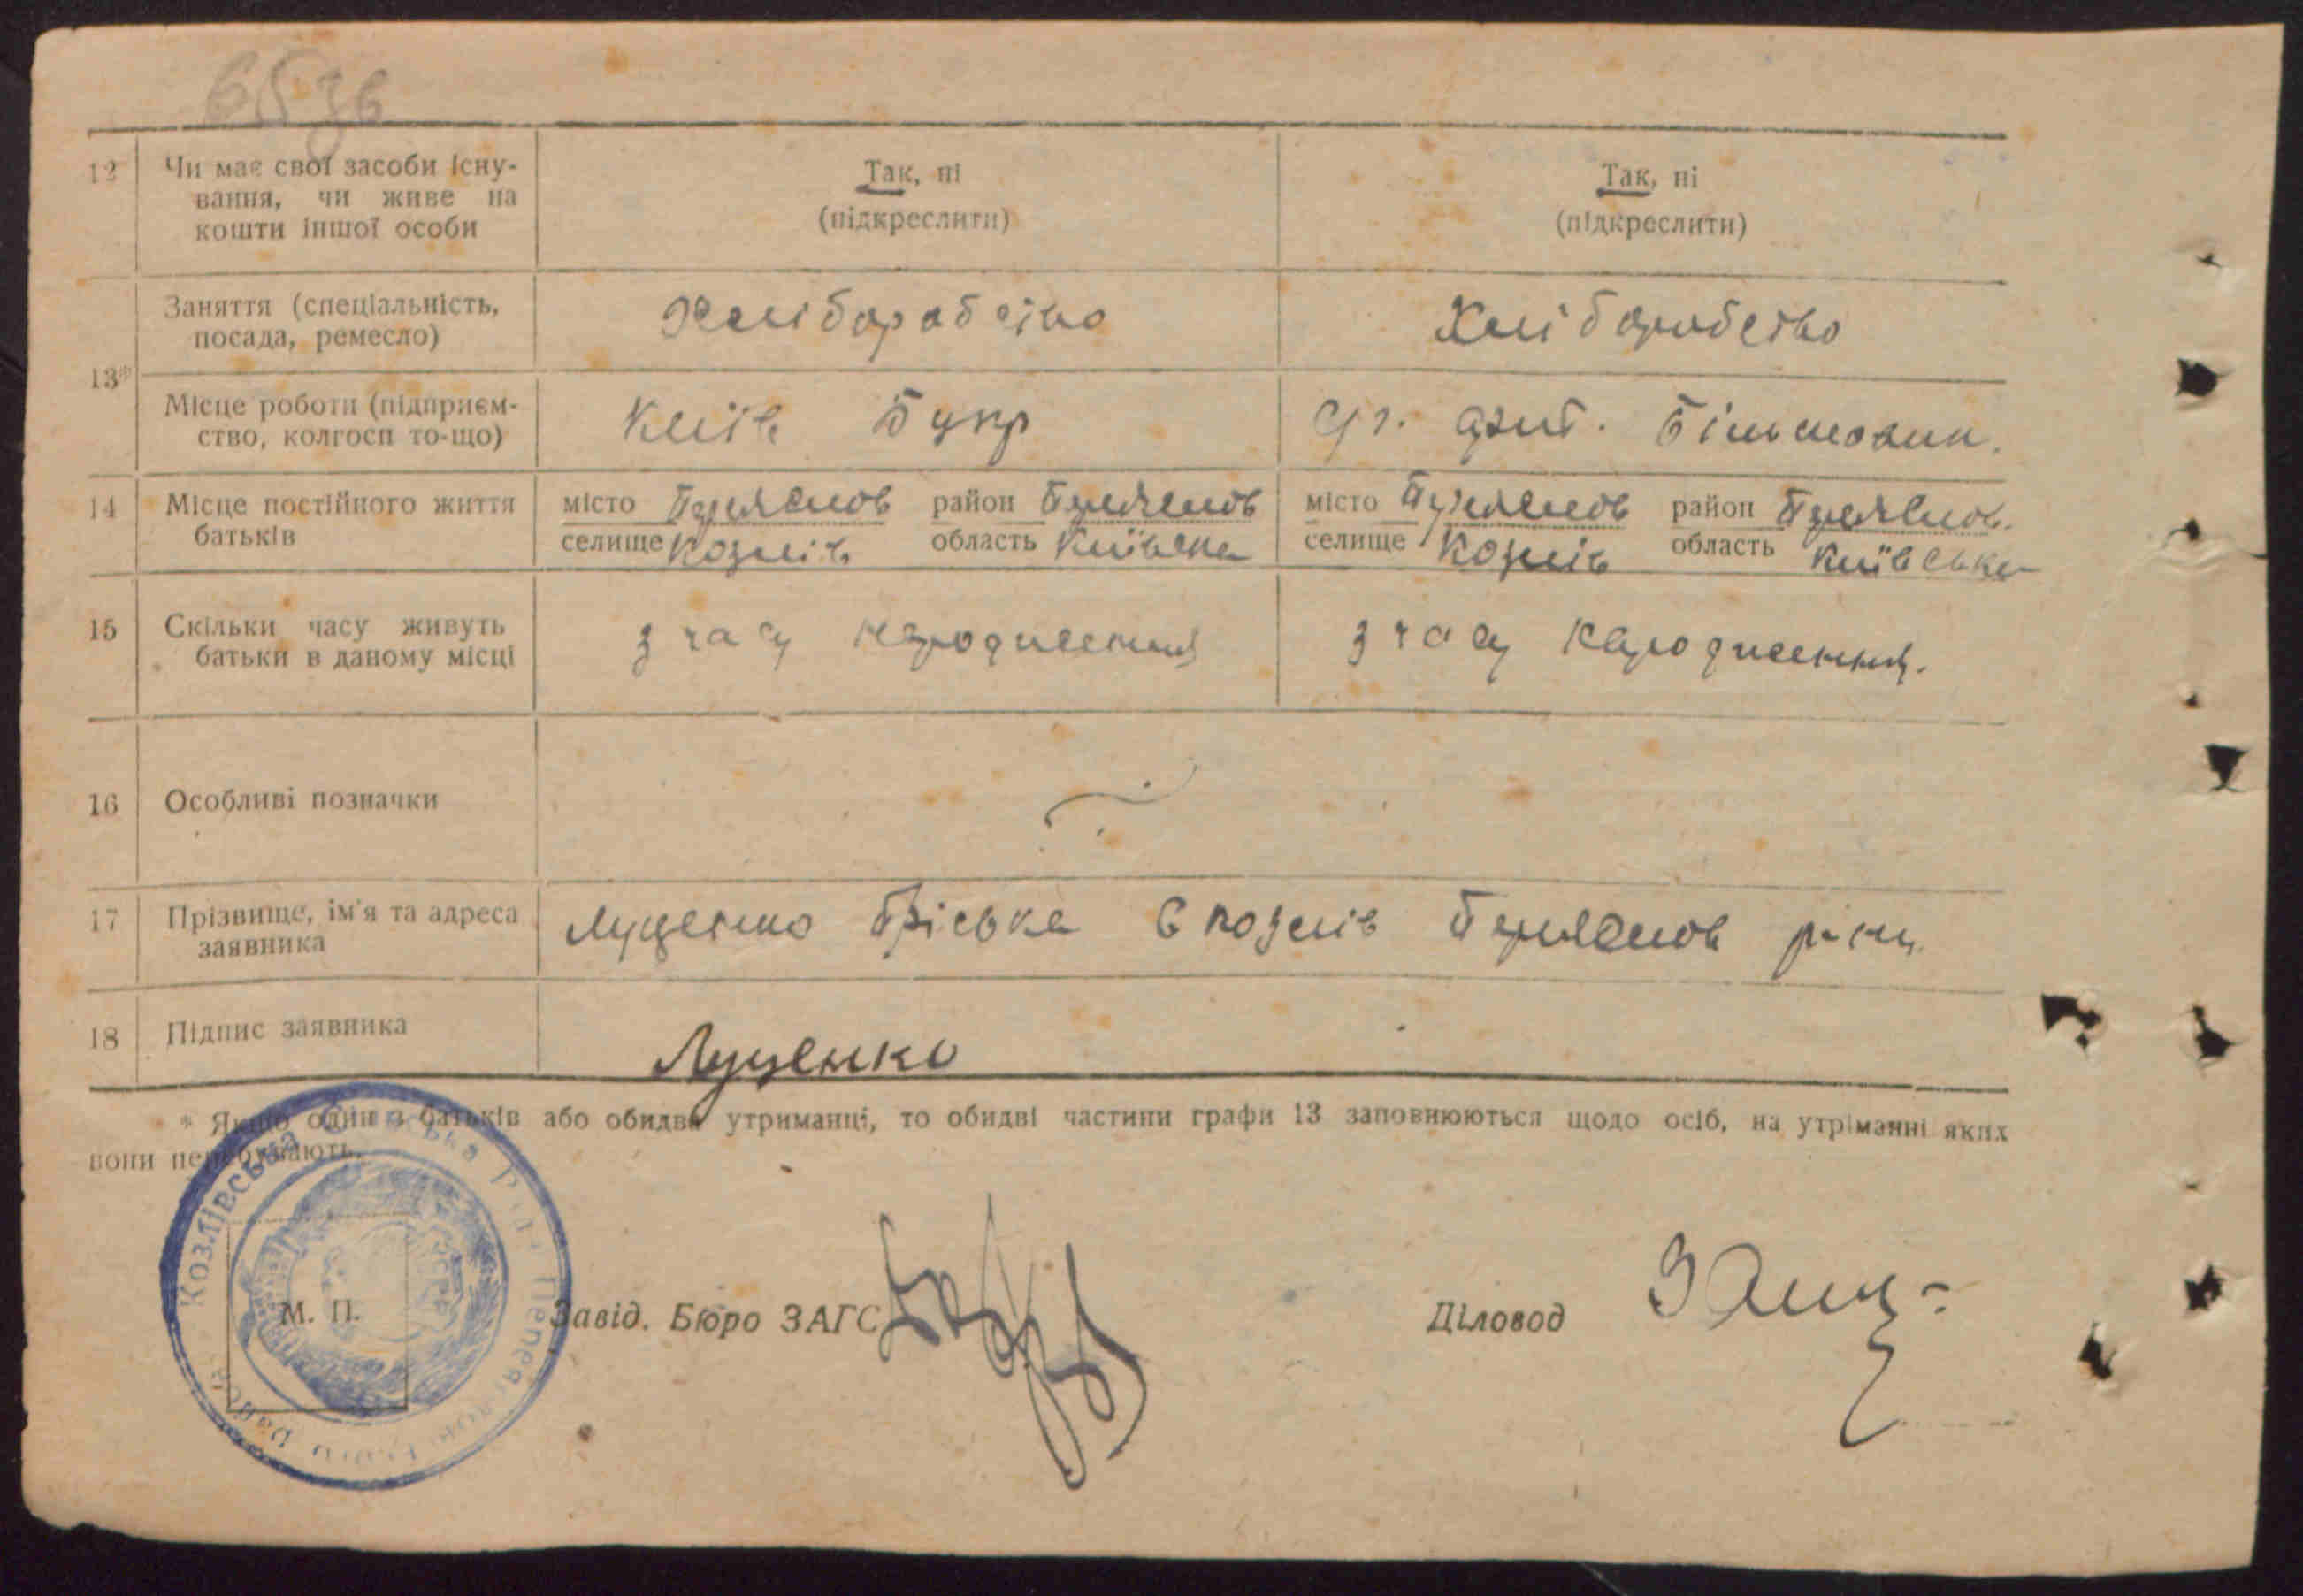 6536
12 Чи має свої засоби існу-
вання, чи живе на
кошти іншої особи
Так, ні
(підкреслити)
Так, ні
(підкреслити)
13*
Заняття (спеціальність,
посада, ремесло)
Хліборобство
Хліборобство
Місце роботи (підприєм-
ство, колгосп то-що)
Київ
арт. Більшовик.
14 Місце постійного життя
батьків
місто Переяслов район Переяслов
селище Козлів область Київська
місто Переяслов район Переяслов.
селище Козлів область Київська
15 Скільки часу живуть
батьки в даному місці
з часу народження
з часу народження.
16 Особливі позначки
17 Прізвище, ім'я та адреса
заявника
Луценко Пріська С Козлів Переяслов р-ну
18 Підпис заявника
Луценко
* Якщо один з батьків або обидва утриманці, то обидві частини графи 13 заповнюються щодо осіб, на утріманні яких
вони перебувають.
Козлівська Сільська Рада Переяслов
М. П.
Завід. Бюро ЗАГС
Діловод